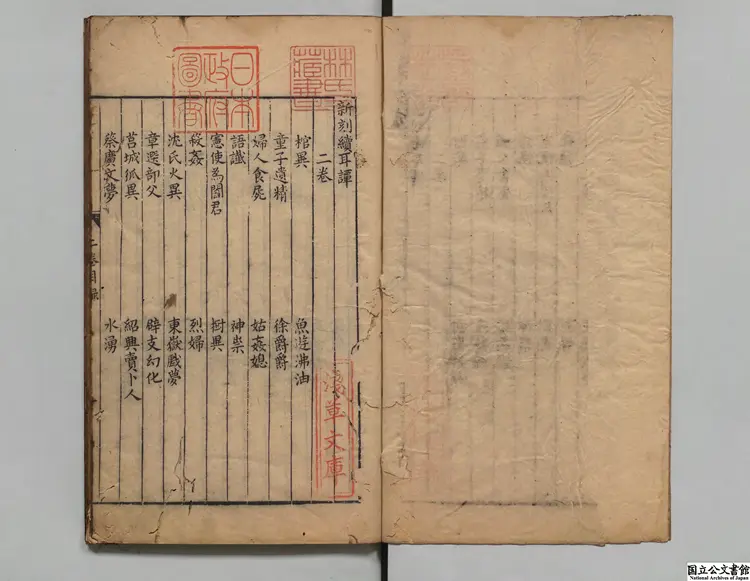 新刻續耳譚
二卷
棺異 魚遊沸油
童子遺精 徐爵爵
婦人食屍 姑姦媳
語讖 神祟
憲使為閻君 樹異
殺姦 烈婦
沈氏火異 東嶽戲夢
章選部父 辟支幻化
莒城狐異 紹興賣卜人
蔡廣文夢 水湧
二卷目錄
日本政府圖書
林氏藏書
淺草文庫
国立公文書館
National Archives of Japan